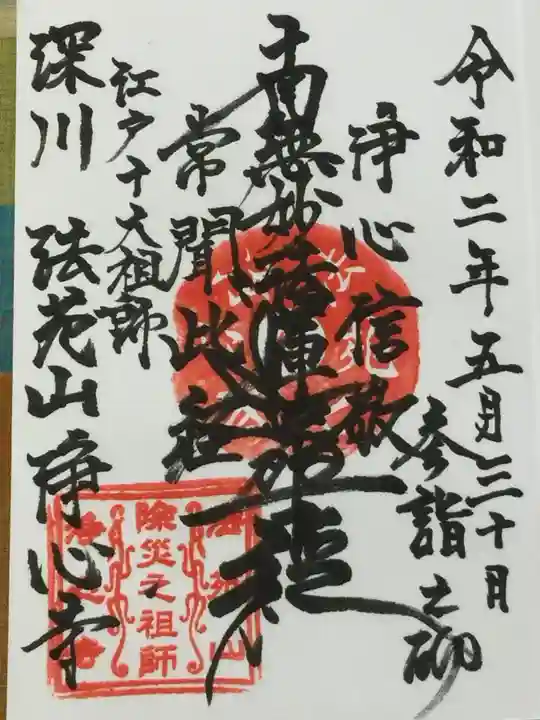 令和二年五月三十日
参詣之砌
浄心信敬
南無妙法蓮華経
常聞此経
江戸十大祖師
深川 法苑山浄心寺
除災之祖師